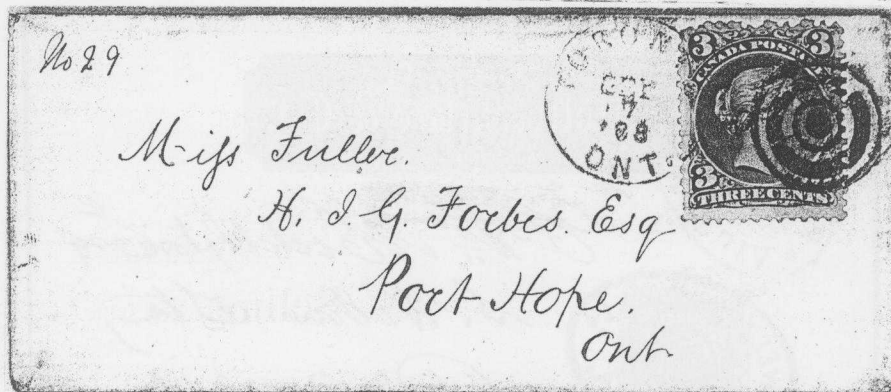 No 29
TORON
7
'68
ONT.
3 CANADA POSTAGE 3
3
THREE CENTS
Miss Fuller.
H. J. G. Forbes. Esq
Port Hope.
Ont